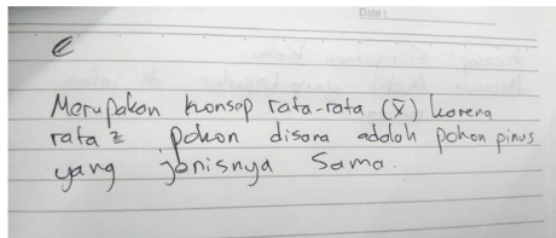 Date :
e
Merupakan konsep rata-rata (x̄) karena
rata2 pohon disana adalah pohon pinus
yang jenisnya sama.